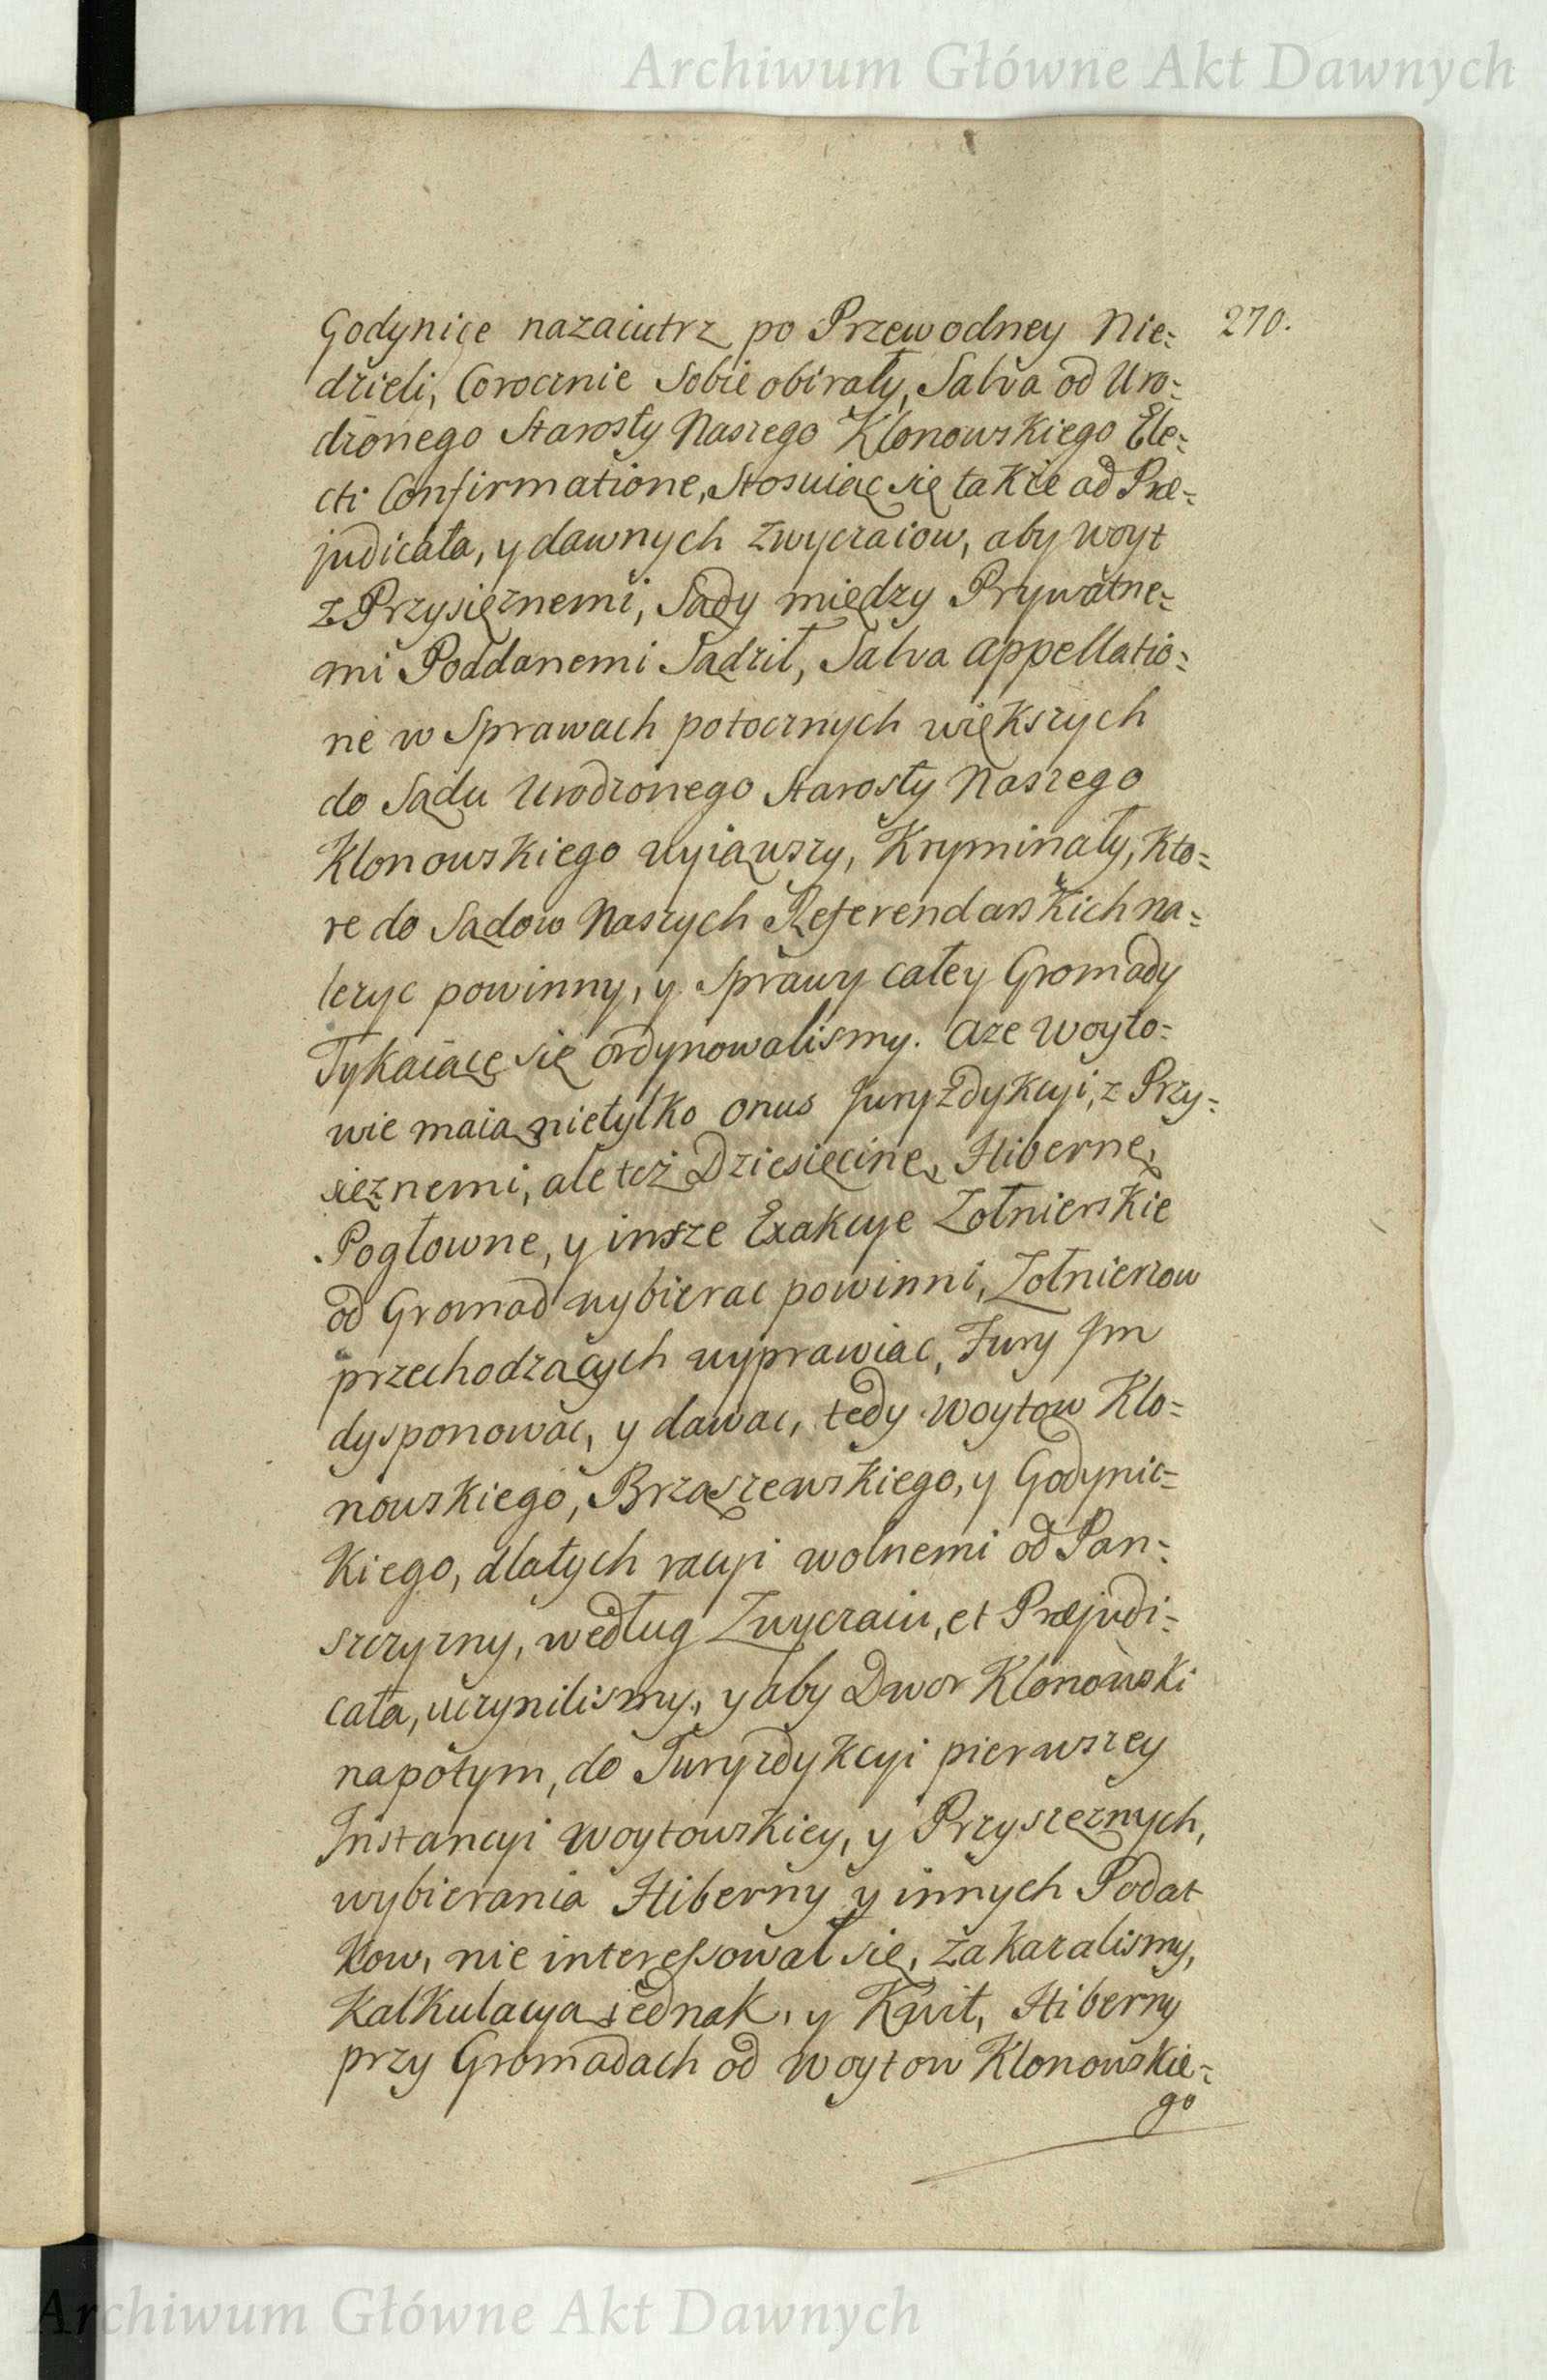 Archiwum Główne Akt Dawnych
270.
Godynice nazaiutrz po Przewodney Nie=
dzieli, Corocznie Sobie obirały, Salva od Uro=
dzonego Starosty Naszego Klonowskiego Ele=
cti Confirmatione, Stosuiąc się także ad Præ=
judicata, y dawnych zwyczaiow, aby woyt
z Przysięznemi, Sądy między Prywatne=
mi Poddanemi Sądził, Salva appellatio=
ne w Sprawach potocznych większych
do Sądu Urodzonego Starosty Naszego
Klonowskiego wyiąwszy, Kryminały, Kto=
re do Sądow Naszych Referendarskich na=
lezyc powinny, y Sprawy całey Gromady
Tykaiące się ordynowalismy. Aze Woyto=
wie maią nietylko onus Juryzdykcyi, z Przy=
sięznemi, ale też Dziesięcinę, Hibernę,
Pogłowne, y insze Exakcye Zołnierskie
od Gromad wybierac powinni, Zołnierzow
przechodzących wyprawiac, Fury Jm
dysponowac, y dawac, tedy Woytow Klo=
nowskiego, Brząszewskiego, y Godynic=
kiego, dlatych racyi wolnemi od Pan=
szczyzny, według Zwyczaiu, et Præjudi=
cata, uczynilismy, y aby Dwor Klonowski
napotym, do Juryzdykcyi pierwszey
Instancyi Woytowskiey, y Przysięznych,
wybierania Hiberny y innych Podat
kow, nie interessował się, zakazalismy,
Kalkulacya jednak, y Kwit, Hiberny
przy Gromadach od Woytow Klonowskie=
go
Archiwum Główne Akt Dawnych